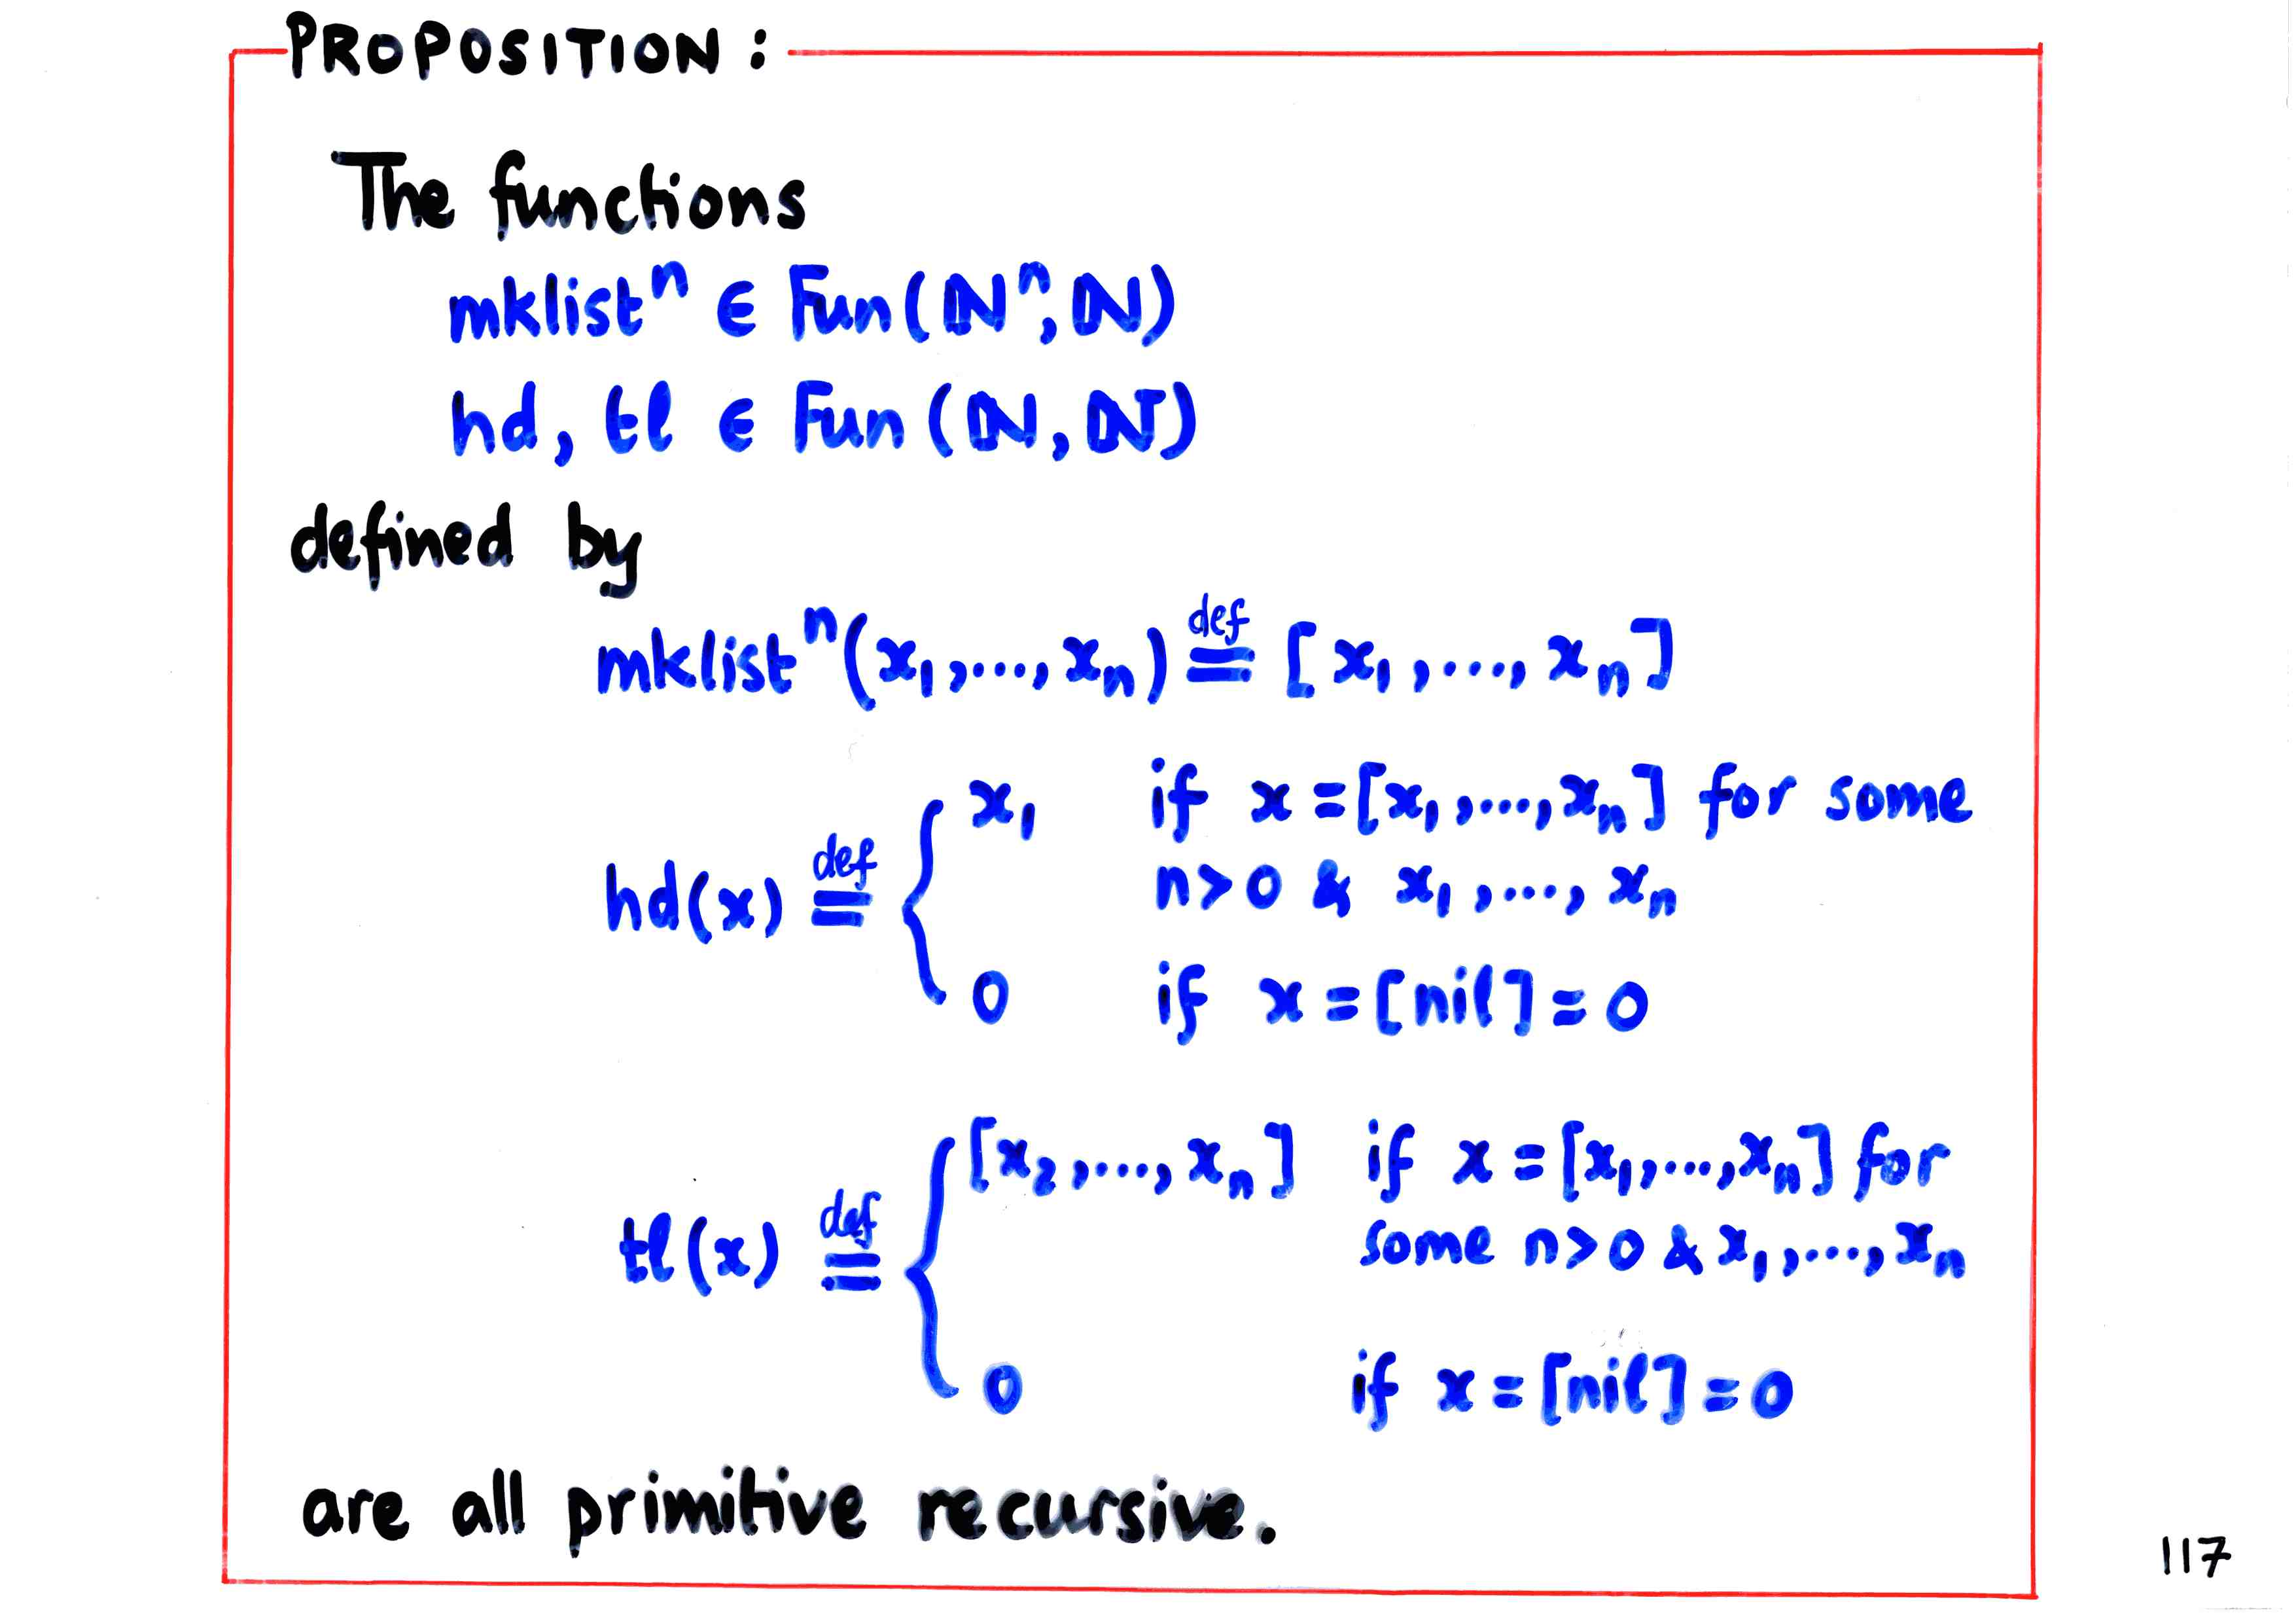 PROPOSITION:
The functions
mklistⁿ ∈ Fun(ℕⁿ, ℕ)
hd, tl ∈ Fun(ℕ, ℕ)
defined by
mklistⁿ(x₁,...,xₙ) def= [x₁,...,xₙ]
hd(x) def= { x₁ if x = [x₁,...,xₙ] for some
n>0 & x₁,...,xₙ
0 if x = [nil] = 0
tl(x) def= { [x₂,...,xₙ] if x = [x₁,...,xₙ] for
some n>0 & x₁,...,xₙ
0 if x = [nil] = 0
are all primitive recursive.
117